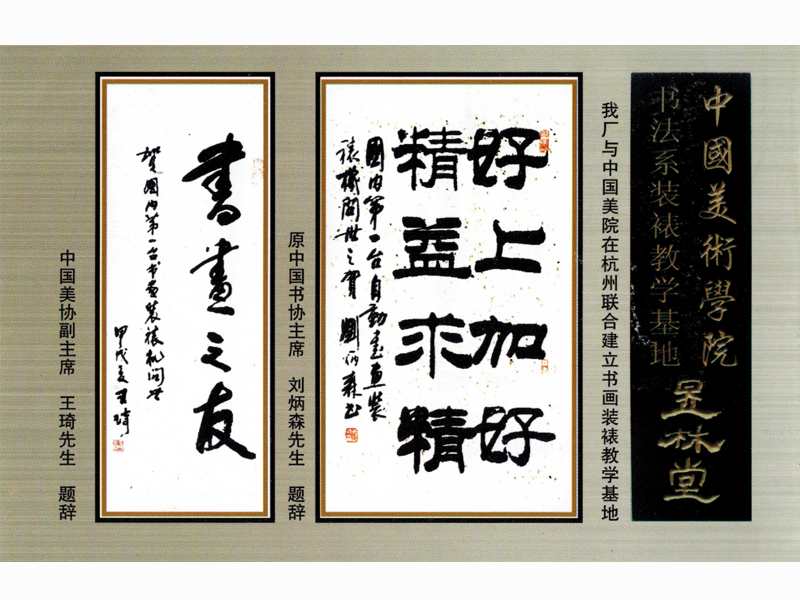 中國美術學院
书法系装裱教学基地
昱林堂
我厂与中国美院在杭州联合建立书画装裱教学基地
好上加好
精益求精
國内第一台自動書画装
裱機問世之賀 劉炳森书
原中国书协主席 刘炳森先生 题辞
書畫之友
賀國内第一台书画装裱机问世
甲戌夏王琦
中国美协副主席 王琦先生 题辞